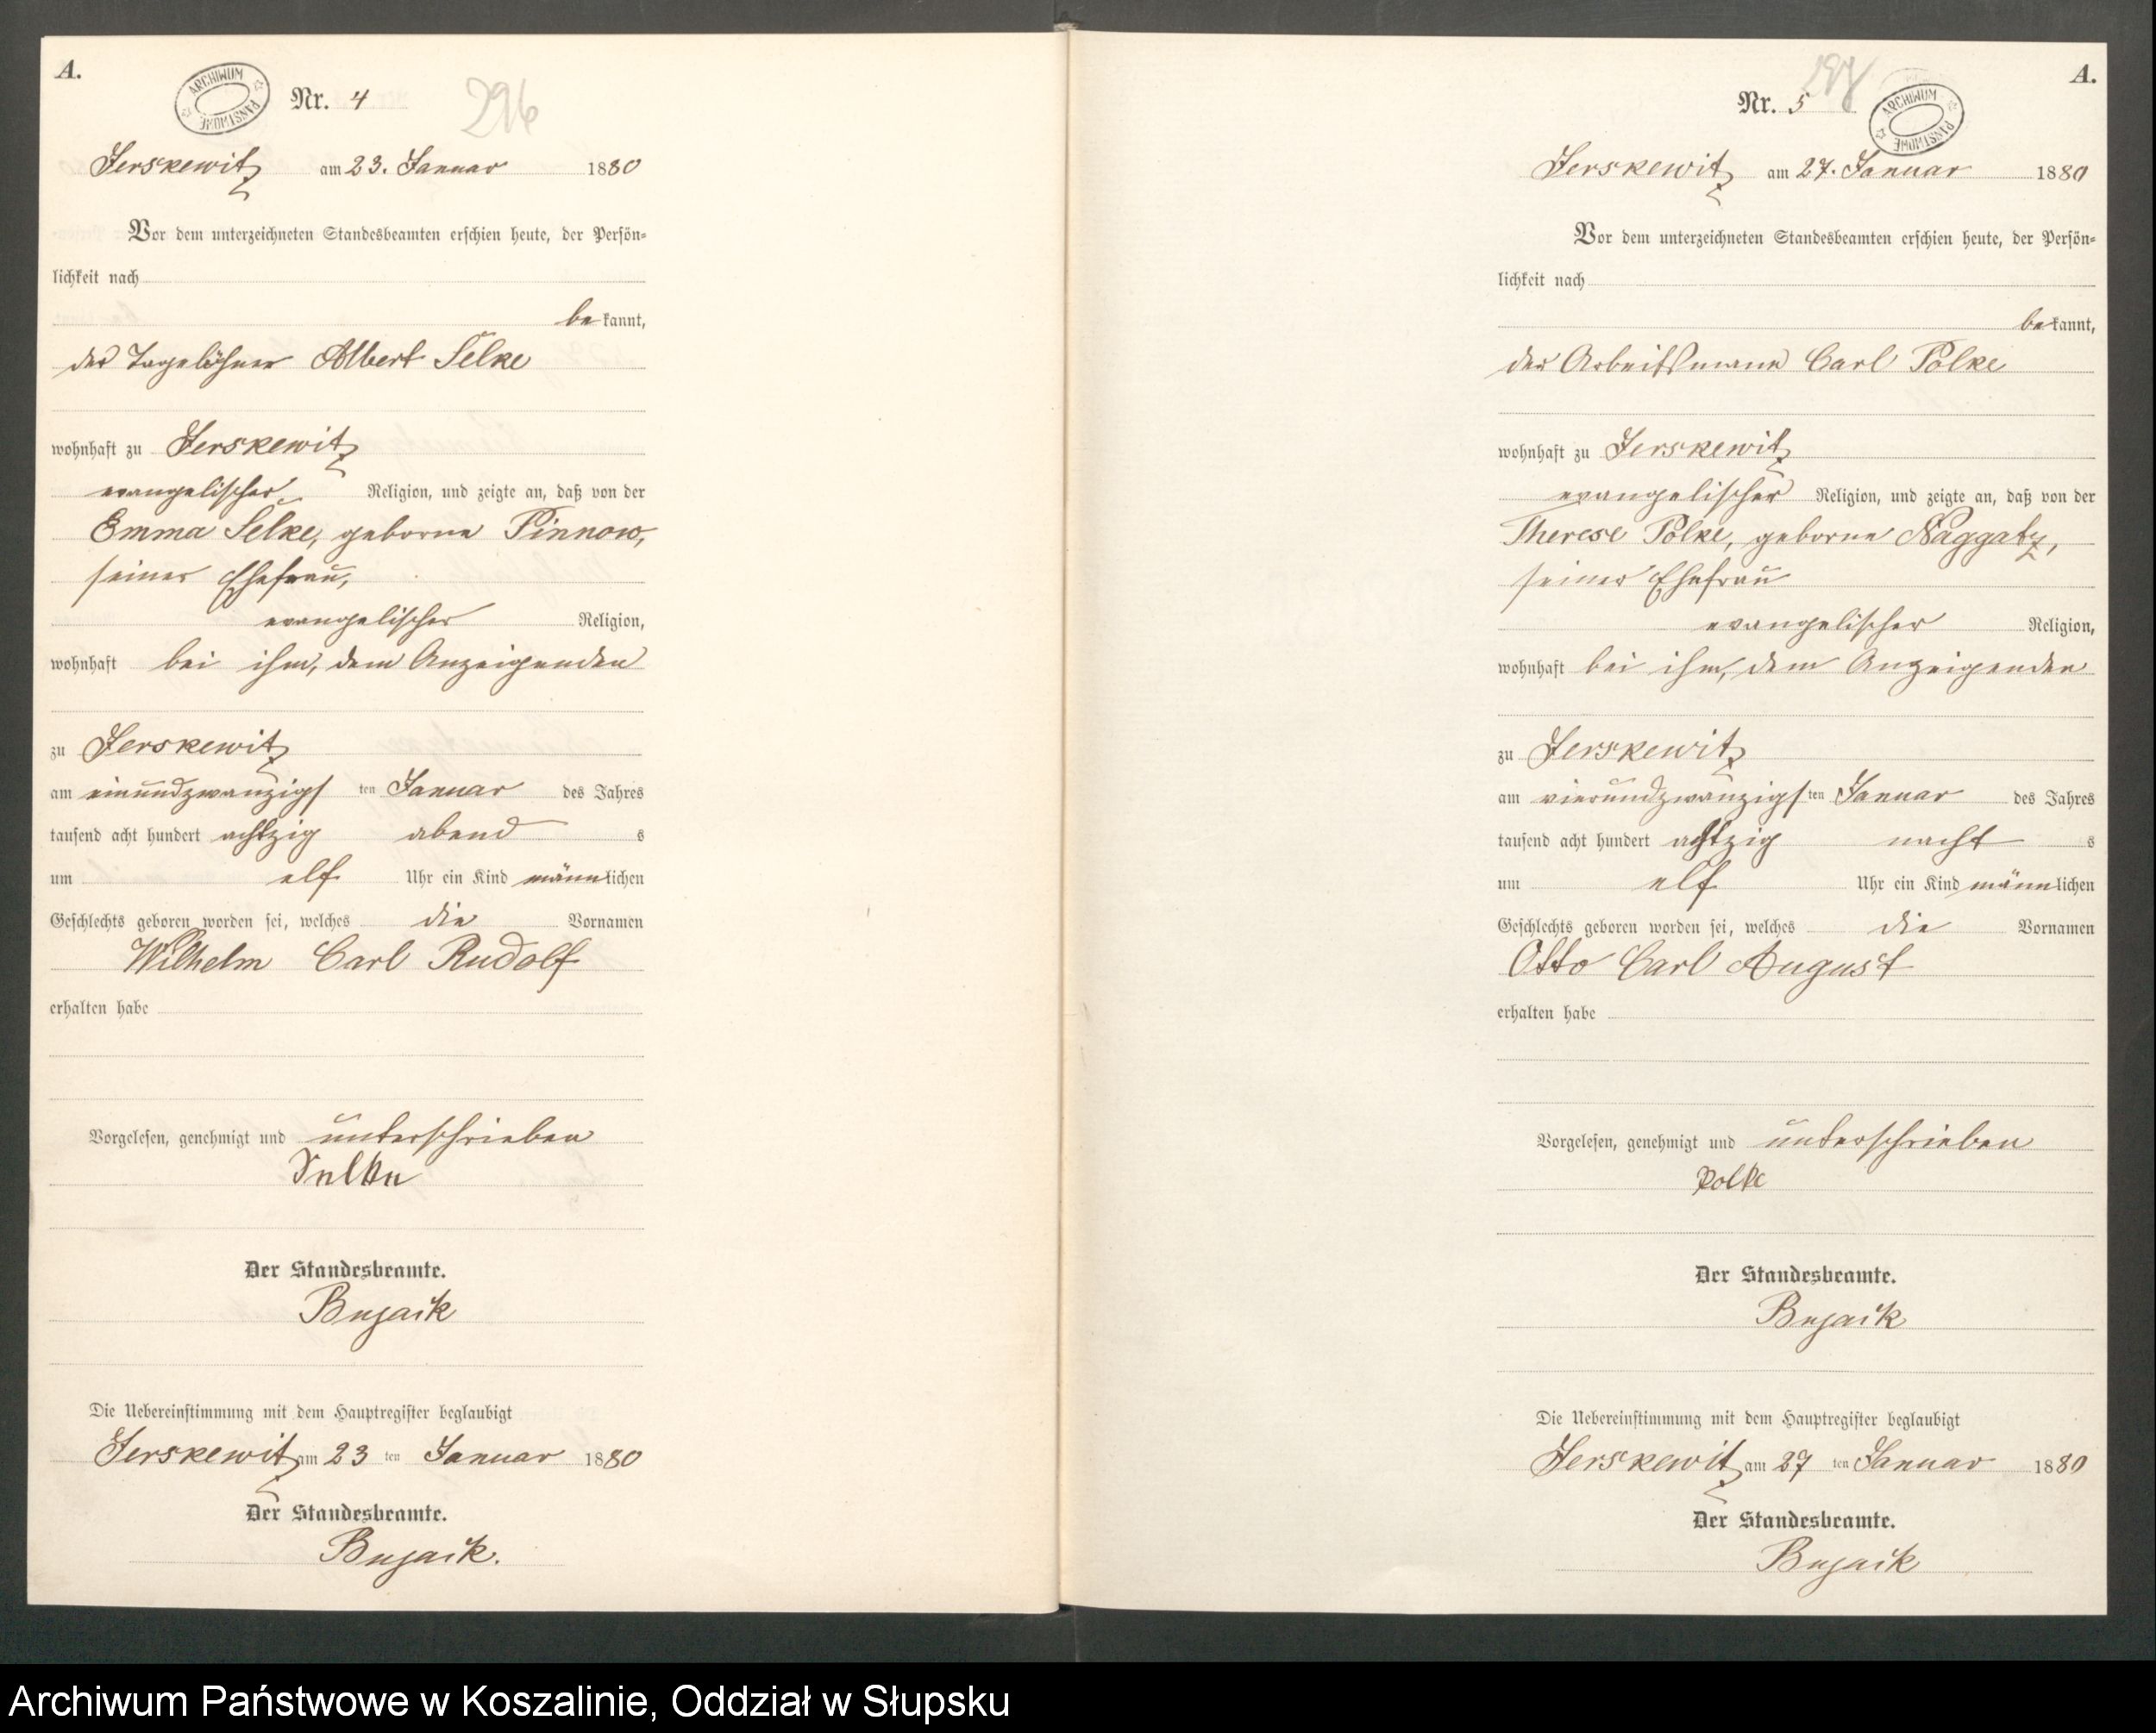 A.
ARCHIWUM PAŃSTWOWE
Nr. 4
296
Jerskewitz am 23. Januar 1880
Vor dem unterzeichneten Standesbeamten erschien heute, der Persön-
lichkeit nach
bekannt,
der Tagelöhner Albert Selke
wohnhaft zu Jerskewitz
evangelischer Religion, und zeigte an, daß von der
Emma Selke, geborne Pinnow,
seiner Ehefrau,
evangelischer Religion,
wohnhaft bei ihm, dem Anzeigenden
zu Jerskewitz
am einundzwanzigsten Januar des Jahres
tausend acht hundert achtzig abends
um elf Uhr ein Kind männlichen
Geschlechts geboren worden sei, welches die Vornamen
Wilhelm Carl Rudolf
erhalten habe
Vorgelesen, genehmigt und unterschrieben
Selke
Der Standesbeamte.
Bujack
Die Uebereinstimmung mit dem Hauptregister beglaubigt
Jerskewitz am 23 ten Januar 1880
Der Standesbeamte.
Bujack.
A.
297
ARCHIWUM PAŃSTWOWE
Nr. 5
Jerskewitz am 27. Januar 1880
Vor dem unterzeichneten Standesbeamten erschien heute, der Persön-
lichkeit nach
bekannt,
der Arbeitsmann Carl Polke
wohnhaft zu Jerskewitz
evangelischer Religion, und zeigte an, daß von der
Therese Polke, geborne Naggatz,
seiner Ehefrau
evangelischer Religion,
wohnhaft bei ihm, dem Anzeigenden
zu Jerskewitz
am vierundzwanzigsten Januar des Jahres
tausend acht hundert achtzig nachts
um elf Uhr ein Kind männlichen
Geschlechts geboren worden sei, welches die Vornamen
Otto Carl August
erhalten habe
Vorgelesen, genehmigt und unterschrieben
Polke
Der Standesbeamte.
Bujack
Die Uebereinstimmung mit dem Hauptregister beglaubigt
Jerskewitz am 27 ten Januar 1880
Der Standesbeamte.
Bujack
Archiwum Państwowe w Koszalinie, Oddział w Słupsku